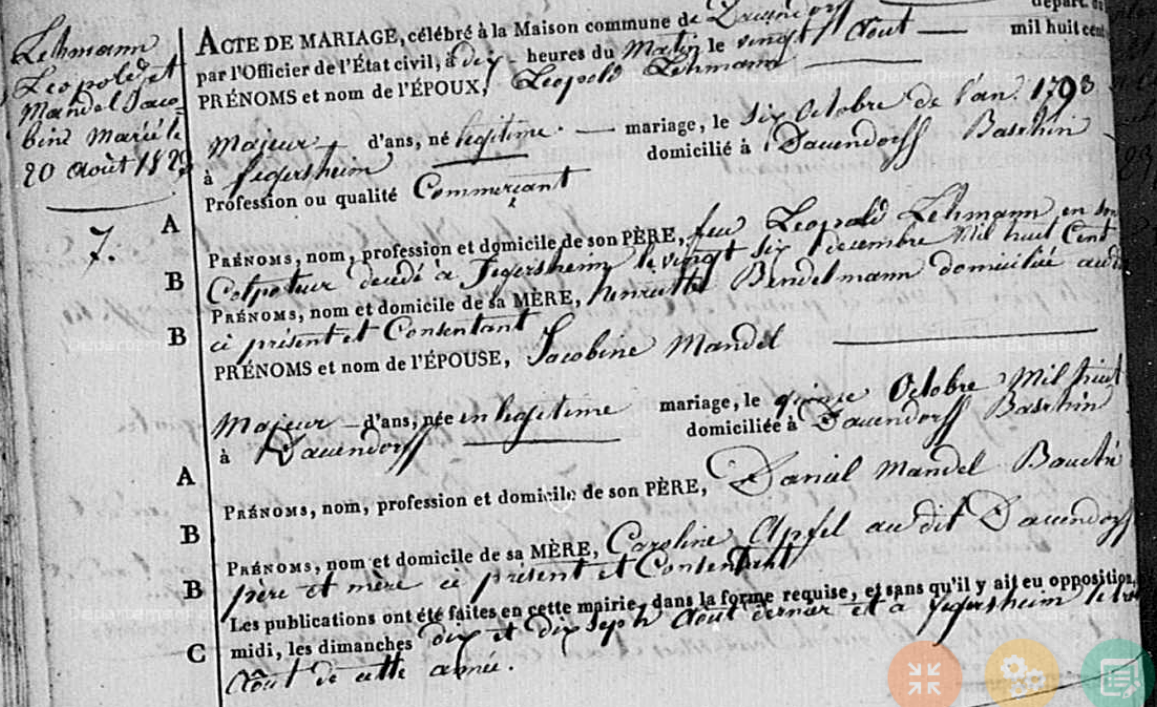 Lehmann
Leopold et
Mandel Jaco-
bine Marié le
20 août 182
7.
ACTE DE MARIAGE, célébré à la Maison commune de Dauendorff
départ. du
par l'Officier de l'État civil, à dix heures du Matin le vingt Août
mil huit cent
PRÉNOMS et nom de l'ÉPOUX, Leopold Lehmann
Majeur d'ans, né legitime mariage, le six Octobre de l'an 1793
à fegersheim domicilié à Dauendorff Basrhin
Profession ou qualité Commerçant
A PRÉNOMS, nom, profession et domicile de son PÈRE, feu Leopold Lehmann en son
B Colporteur decedé à Fegersheim le vingt six decembre Mil huit Cent
PRÉNOMS, nom et domicile de sa MÈRE, Bendelmann domiciliée audit
B ci présent et Consentant
PRÉNOMS et nom de l'ÉPOUSE, Jacobine Mandel
Majeur d'ans, née en legitime mariage, le quinze Octobre Mil huit
à Dauendorff domiciliée à Dauendorff Basrhin
A PRÉNOMS, nom, profession et domicile de son PÈRE, Daniel Mandel
B PRÉNOMS, nom et domicile de sa MÈRE, Caroline Apfel au dit Dauendorff
B père et mère ci présent et Consentant
Les publications ont été faites en cette mairie, dans la forme requise, et sans qu'il y ait eu opposition,
C midi, les dimanches dix et dix sept Août dernier et a fegersheim le
Août de cette année.